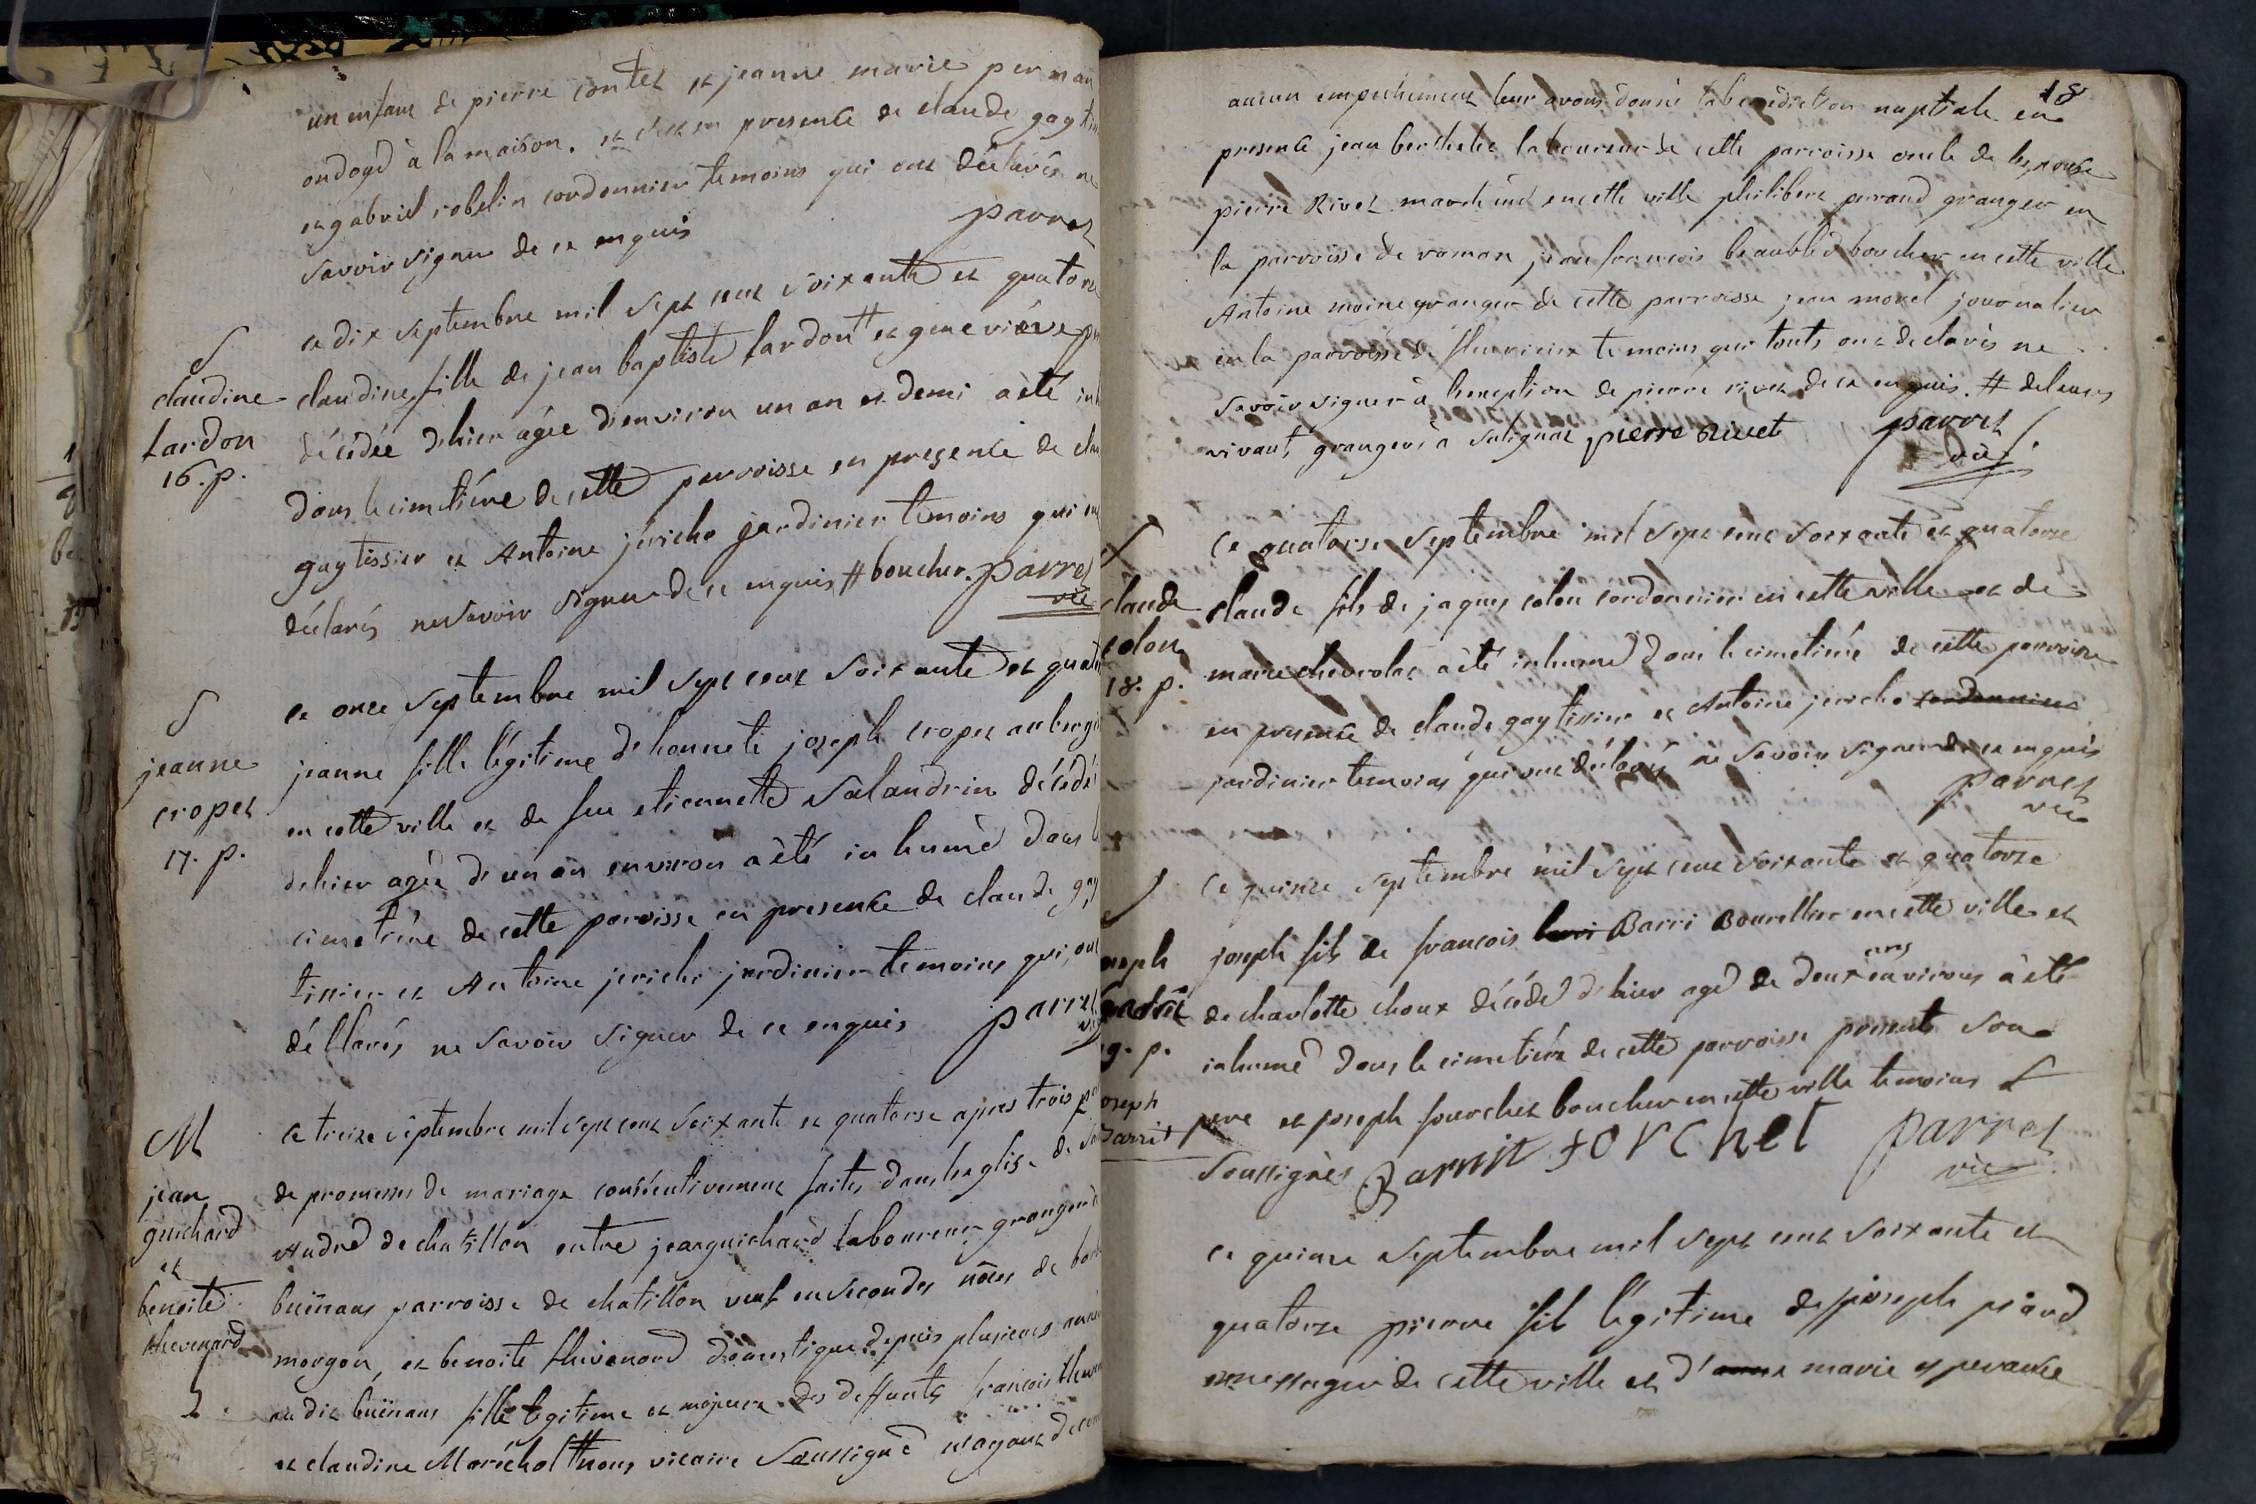 un enfant de pierre contet et jeanne marie perman
ondoyé à la maison. et cest en presence de claude gay tis
et gabriel robelin cordonnier temoins qui ont déclarés ne
savoir signer de ce enquis parret
S
claudine
lardon
16. p.
ce dix septembre mil sept cent soixante et quatorze
claudine fille de jean baptiste lardon # et genevieve
décédée d'hier agée d'environ un an et demi a été
dans le cimetière de cette parroisse en presence de
gay tissier et Antoine jericho jardinier temoins qui
déclarés ne savoir signer de ce enquis # boucher. parret
vic
S
jeanne
cropet
17. p.
ce onze septembre mil sept cent soixante et
jeanne fille légitime d'honnete joseph cropet
en cette ville et de feu etiennette salandrin décédé
d'hier agée d'un an environ a été inhumé dans
cimetière de cette paroisse en presence de claude
tissier et Antoine jericho jardinier temoins qui ont
décllarés ne savoir signer de ce enquis parret
vic
M
jean
guichard
et
benoite
thevenard
ce treize septembre mil sept cent soixante et quatorse apres trois
de promesses de mariage consécutivement faites dans l'eglise de
André de chatillon entre jean guichard laboureur granger
buënans parroisse de chatillon veuf en secondes nôces de
morgon, et benoite thevenard domestique depuis plusieurs
au dit buënans fille légitime et majeure des deffunts francois
et claudine Maréchal # nous vicaire Soussigné
18
aucun empechement leur avons donné la benediction nuptiale en
presence jean berthelet laboureur de cette parroisse oncle de l'epouse
pierre Rivet marchand en cette ville philibert perraud granger en
la parroisse de roman, jean francois beaublé boucher en cette ville
Antoine moine granger de cette parroisse jean morel journalier
en la parroisse de fleurieux temoins qui touts ont declarés ne
savoir signer à l'exception de pierre rivet de ce enquis. # de leurs
vivant grangers à sulignat pierre Rivet parret
vic
S
claude
colon
18. p.
Ce quatorse septembre mil sept cent soixante et quatorze
claude fils de jaques colon cordonnier en cette ville et de
marie chevrolat a été inhumé dans le cimetiére de cette parroisse
en presence de claude gay tissier et Antoine jericho cordonnier
jardinier temoins qui ont déclarés ne savoir signer de ce enquis
parret
vic
S
joseph
19. p.
joseph
barrit
Ce quinze septembre mil sept cent soixante et quatorze
joseph fils de francois barri Barri Bourellier en cette ville et
de charlotte choux décédé d'hier agé de deux ans environs à été
inhumé dans le cimetiére de cette parroisse presents son
pere et joseph fourchet boucher en cette ville temoins
soussignés Barrit forchet parret
vic
ce quinze septembre mil sept cent soixante et
quatorze pierre fils légitime de joseph
messager de cette ville et d' anne marie esperance